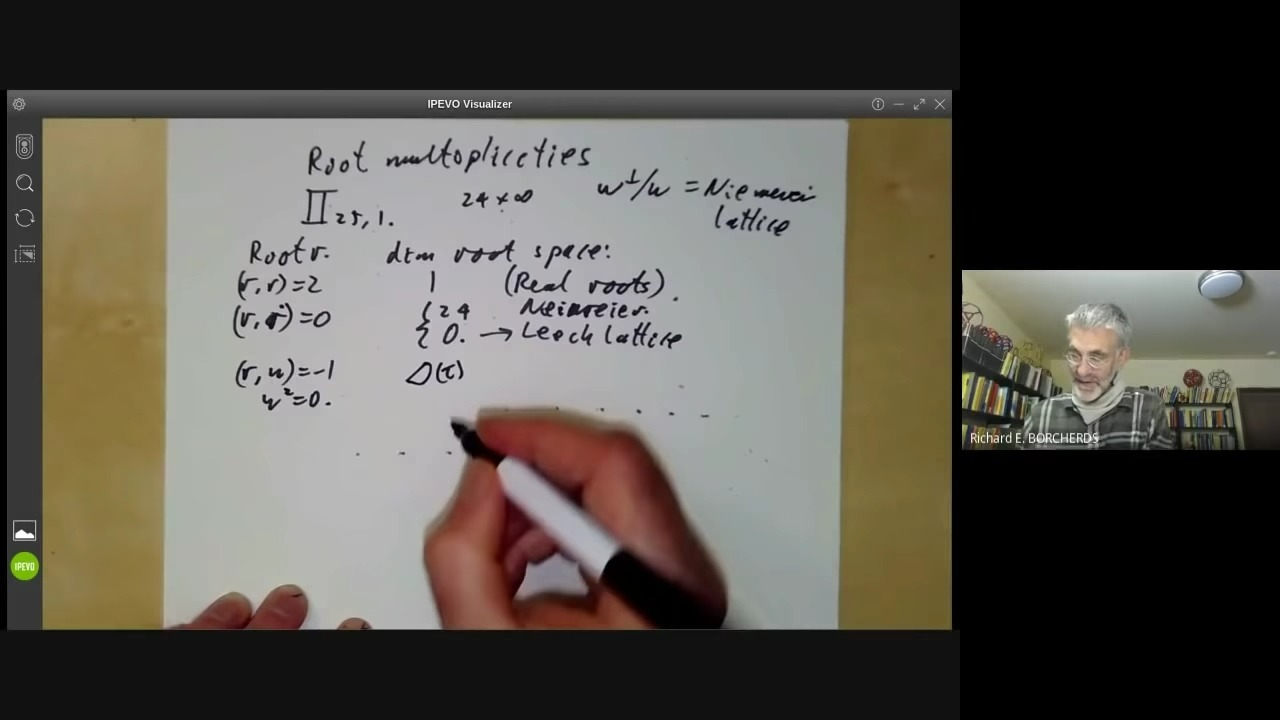 IPEVO Visualizer
Root multopliccties
II25,1. 24 + ∞ w⊥/w = Niemeier
lattice
Root r. dim root space:
(r, r) = 2 1 (Real roots).
(r, r) = 0 { 24 Neimeier.
{ 0. → Leech lattice
(r, u) = -1 Δ(τ)
u² = 0.
IPEVO
Richard E. BORCHERDS